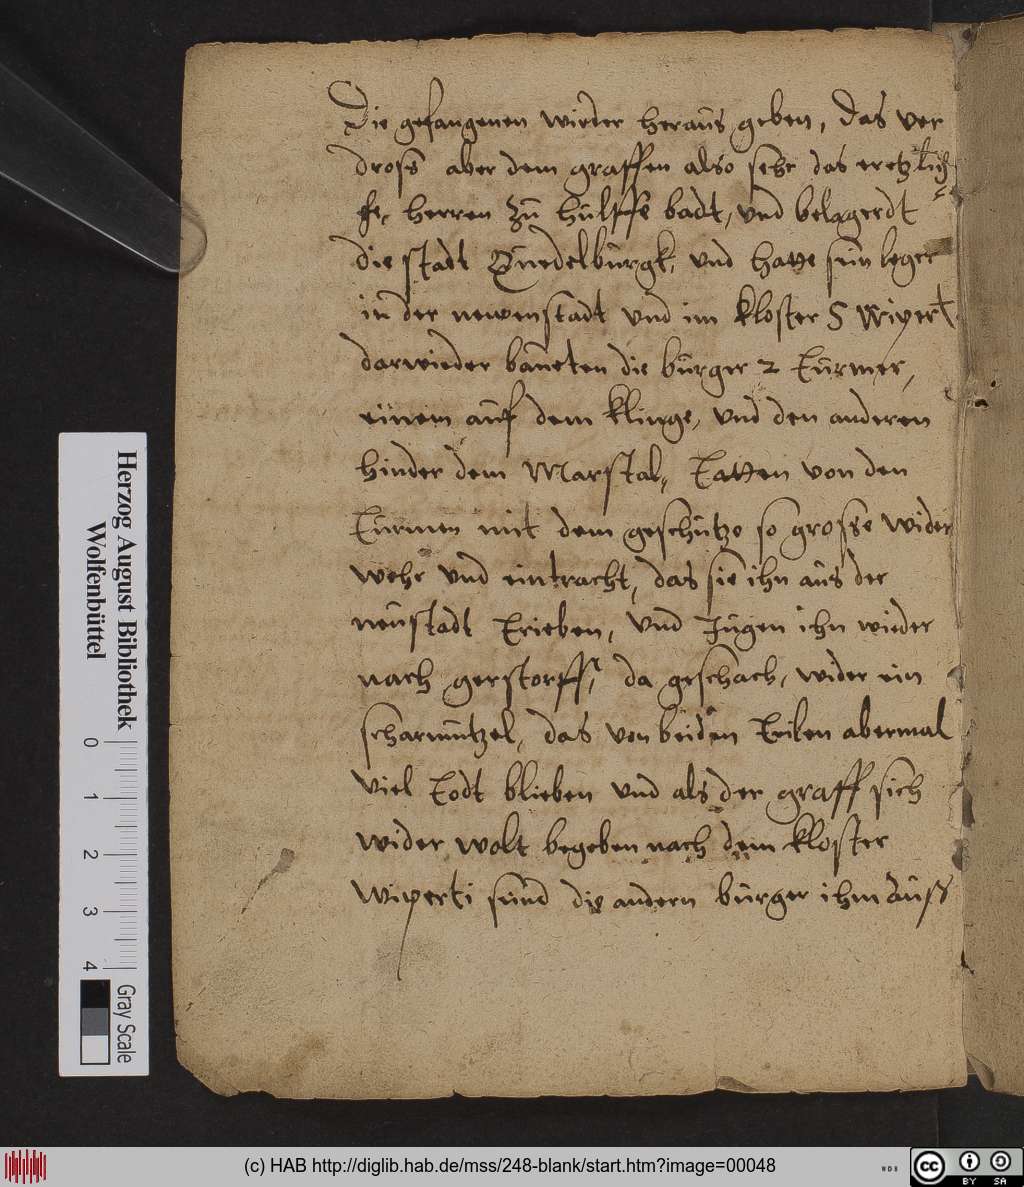 Die gefangenen wieder heraus geben, das ver
dross aber dem graffen also sehr das er etzlich
he, herren zu hülffe badt, und belagerdt
die stadt Quedelburgk, und hatte sein leger
in der newenstadt und im kloster S Wipert
darwieder baueten die bürger 2 Türmer,
einem auf dem klinge, und den anderen
hinder dem Marstal, Tatten von den
Türmen mit dem geschütze so grosse wider
wehr und eintracht, das sie ihn aus der
neustadt Trieben, und Jugen ihn wieder
nach gerstorff, da geschach, wider ein
scharmutzel, das von beiden Teilen abermal
viel Todt blieben und als der graff sich
wider wolt begeben nach dem kloster
Wiperti seind die andern bürger ihm auss
Herzog August Bibliothek
Wolfenbüttel
0 1 2 3 4
Gray Scale
(c) HAB http://diglib.hab.de/mss/248-blank/start.htm?image=00048
WDB
cc BY SA